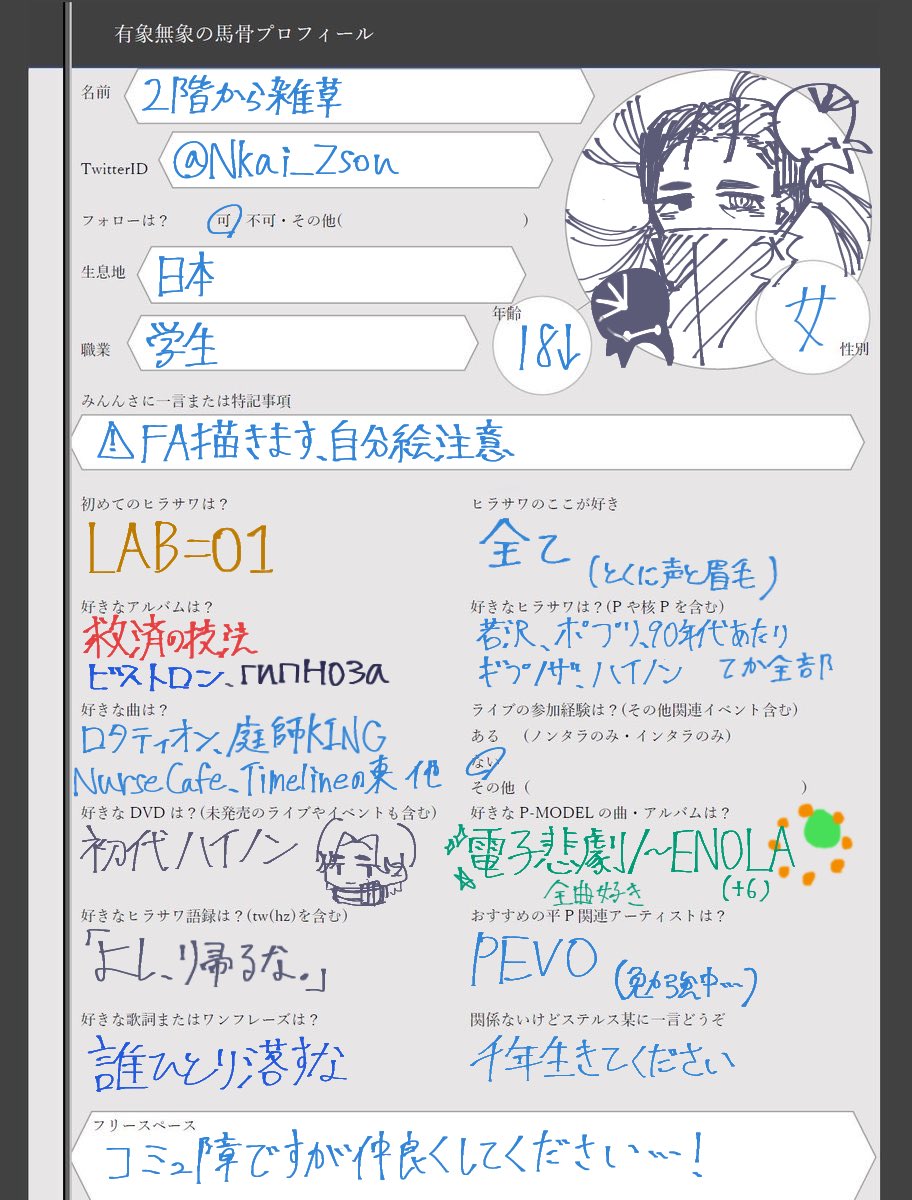 有象無象の馬骨プロフィール
名前
2階から雑草
TwitterID
@Nkai_Zsou
フォローは？ 可 不可・その他( )
生息地
日本
職業
学生
年齢
18↓
女
性別
みんんさに一言または特記事項
⚠FA描きます、自分絵注意
初めてのヒラサワは？
LAB=01
ヒラサワのここが好き
全て
(とくに声と眉毛)
好きなアルバムは？
救済の技法
ビストロン、гипноза
好きなヒラサワは？(Pや核Pを含む)
若沢、ポプリ、90年代あたり
ギプノザ、ハイノン てか全部
好きな曲は？
ロタティオン、庭師KING
Nurse Cafe、Timelineの東 他
ライブの参加経験は？(その他関連イベント含む)
ある (ノンタラのみ・インタラのみ)
ない
その他 ( )
好きなDVDは？(未発売のライブやイベントも含む)
初代ハイノン
好きなP-MODELの曲・アルバムは？
電子悲劇/～ENOLA
全曲好き (+6)
好きなヒラサワ語録は？(tw(hz)を含む)
「よし、り帰るな。」
おすすめの平P関連アーティストは？
PEVO (勉強中…)
好きな歌詞またはワンフレーズは？
誰ひとり落すな
関係ないけどステルス某に一言どうぞ
千年生きてください
フリースペース
コミュ障ですが仲良くしてください…！